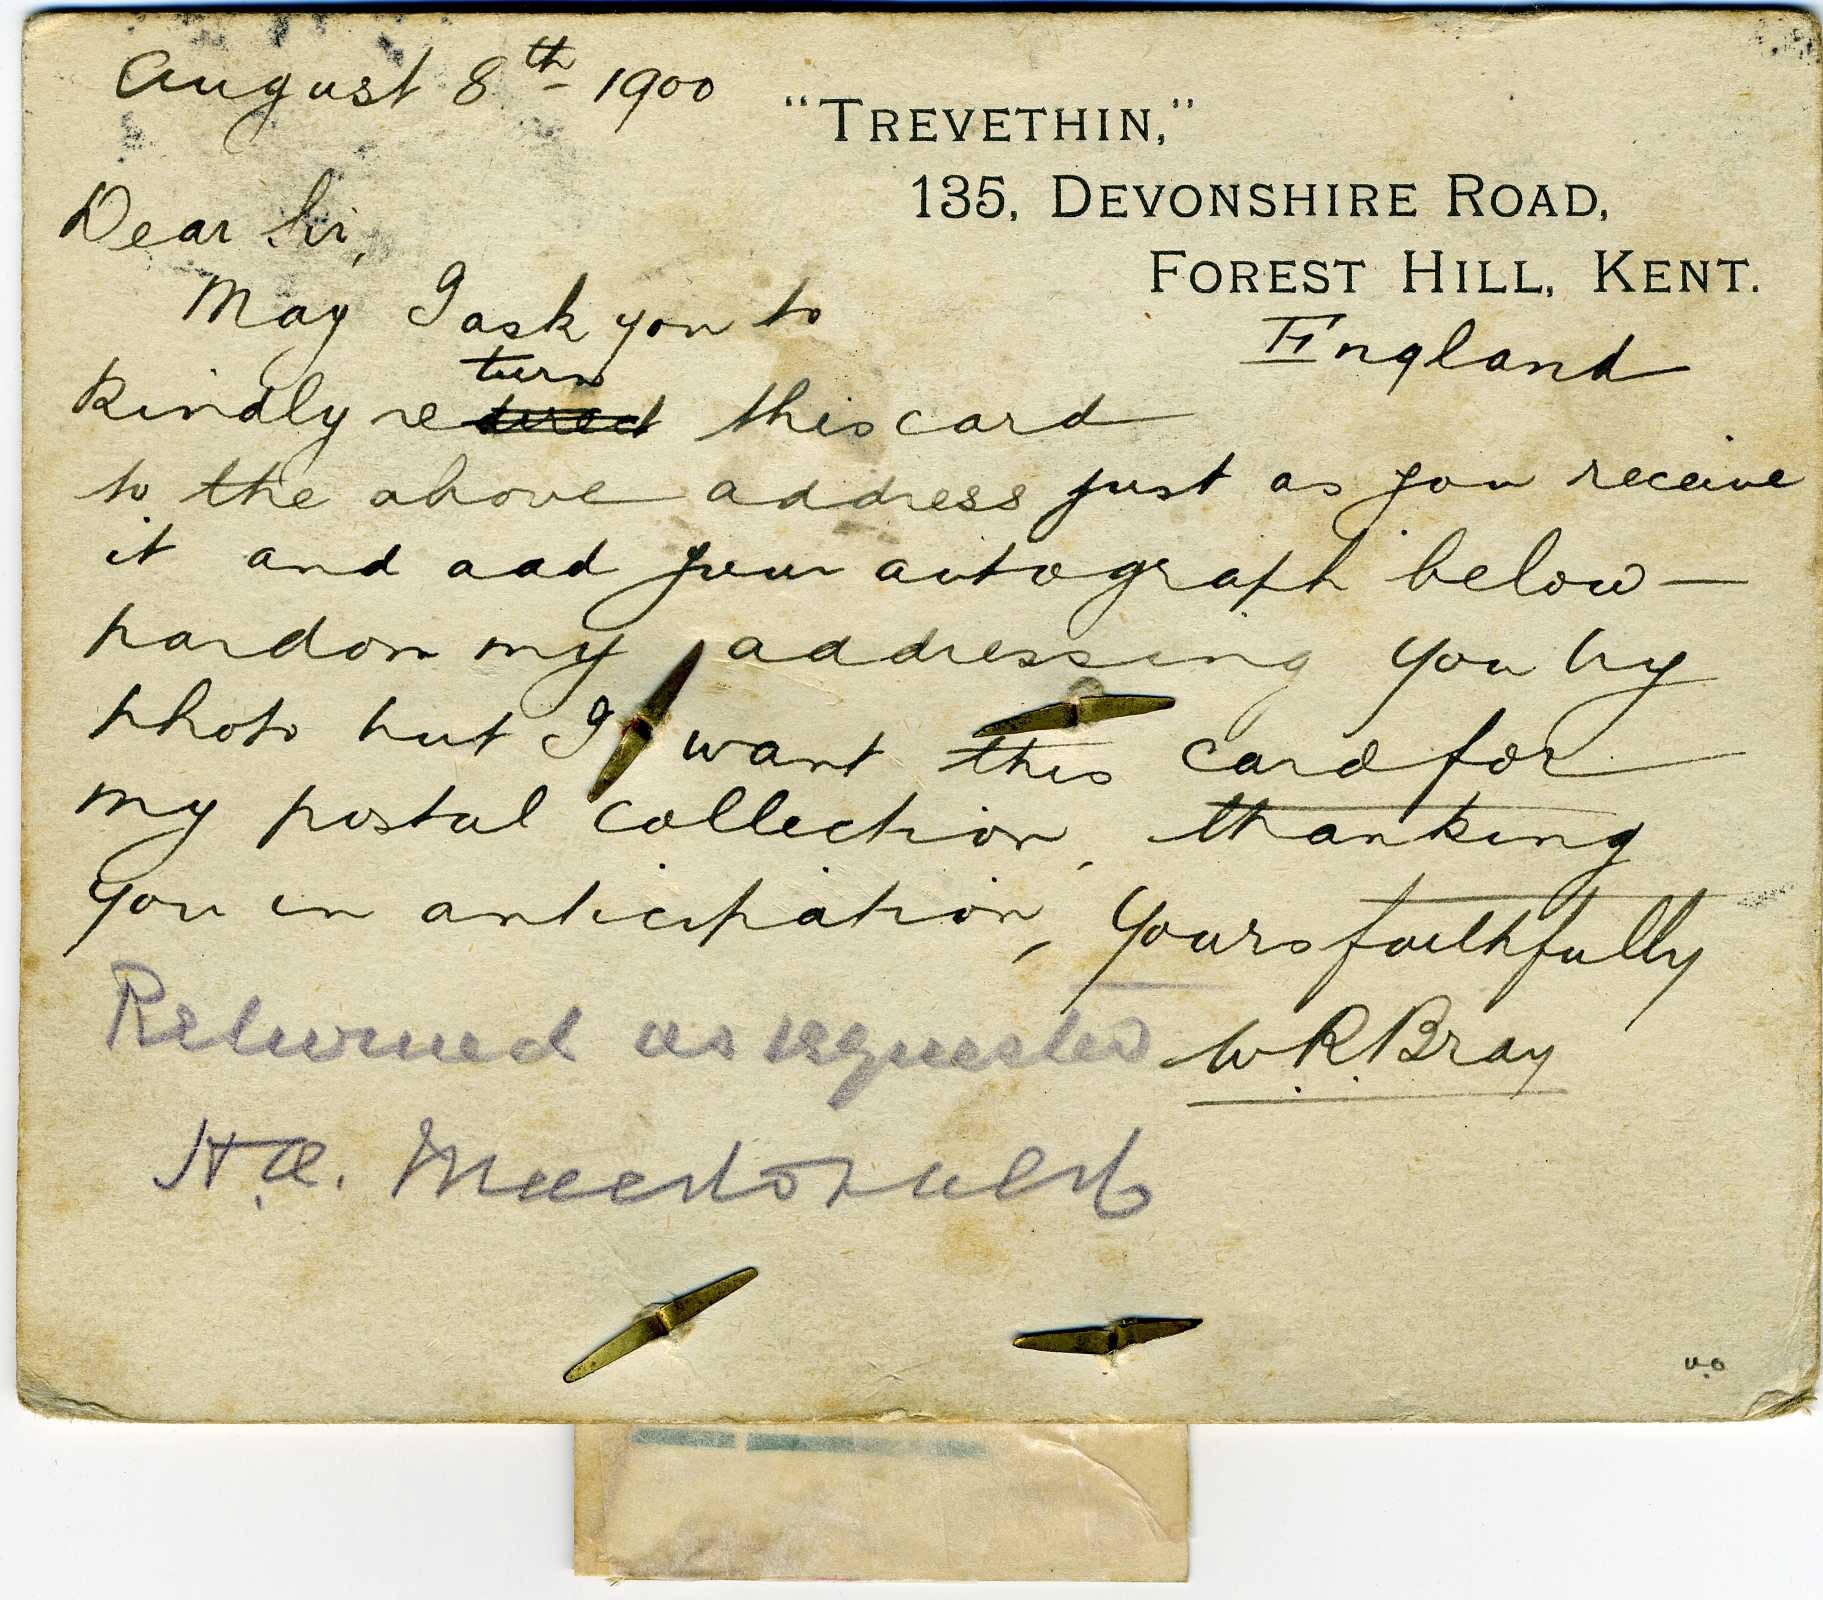 August 8th 1900
"TREVETHIN,"
135, DEVONSHIRE ROAD,
FOREST HILL, KENT.
England
Dear Sir,
May I ask you to
turn
kindly re this card
to the above address just as you receive
it and add your autograph below —
pardon my addressing you by
photo but I want this card for
my postal collection, thanking
you in anticipation, Yours faithfully
W.R.Bray
Returned as requested
H.A. Macdonald